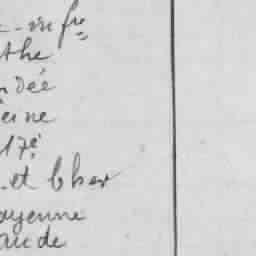 - infre
the
ndée
eine
17e
et Cher
ayenne
aude